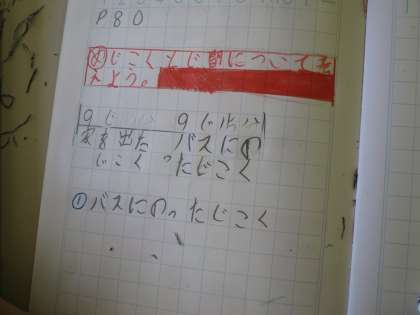 P80
め じこくとじ間について考
えよう。
9じ 9じ
家を出た バスにの
じこく ったじこく
①バスにのったじこく